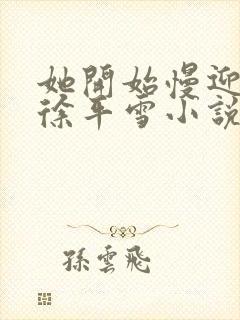 她開始慢迎
徐平雪小說
孫雲飛